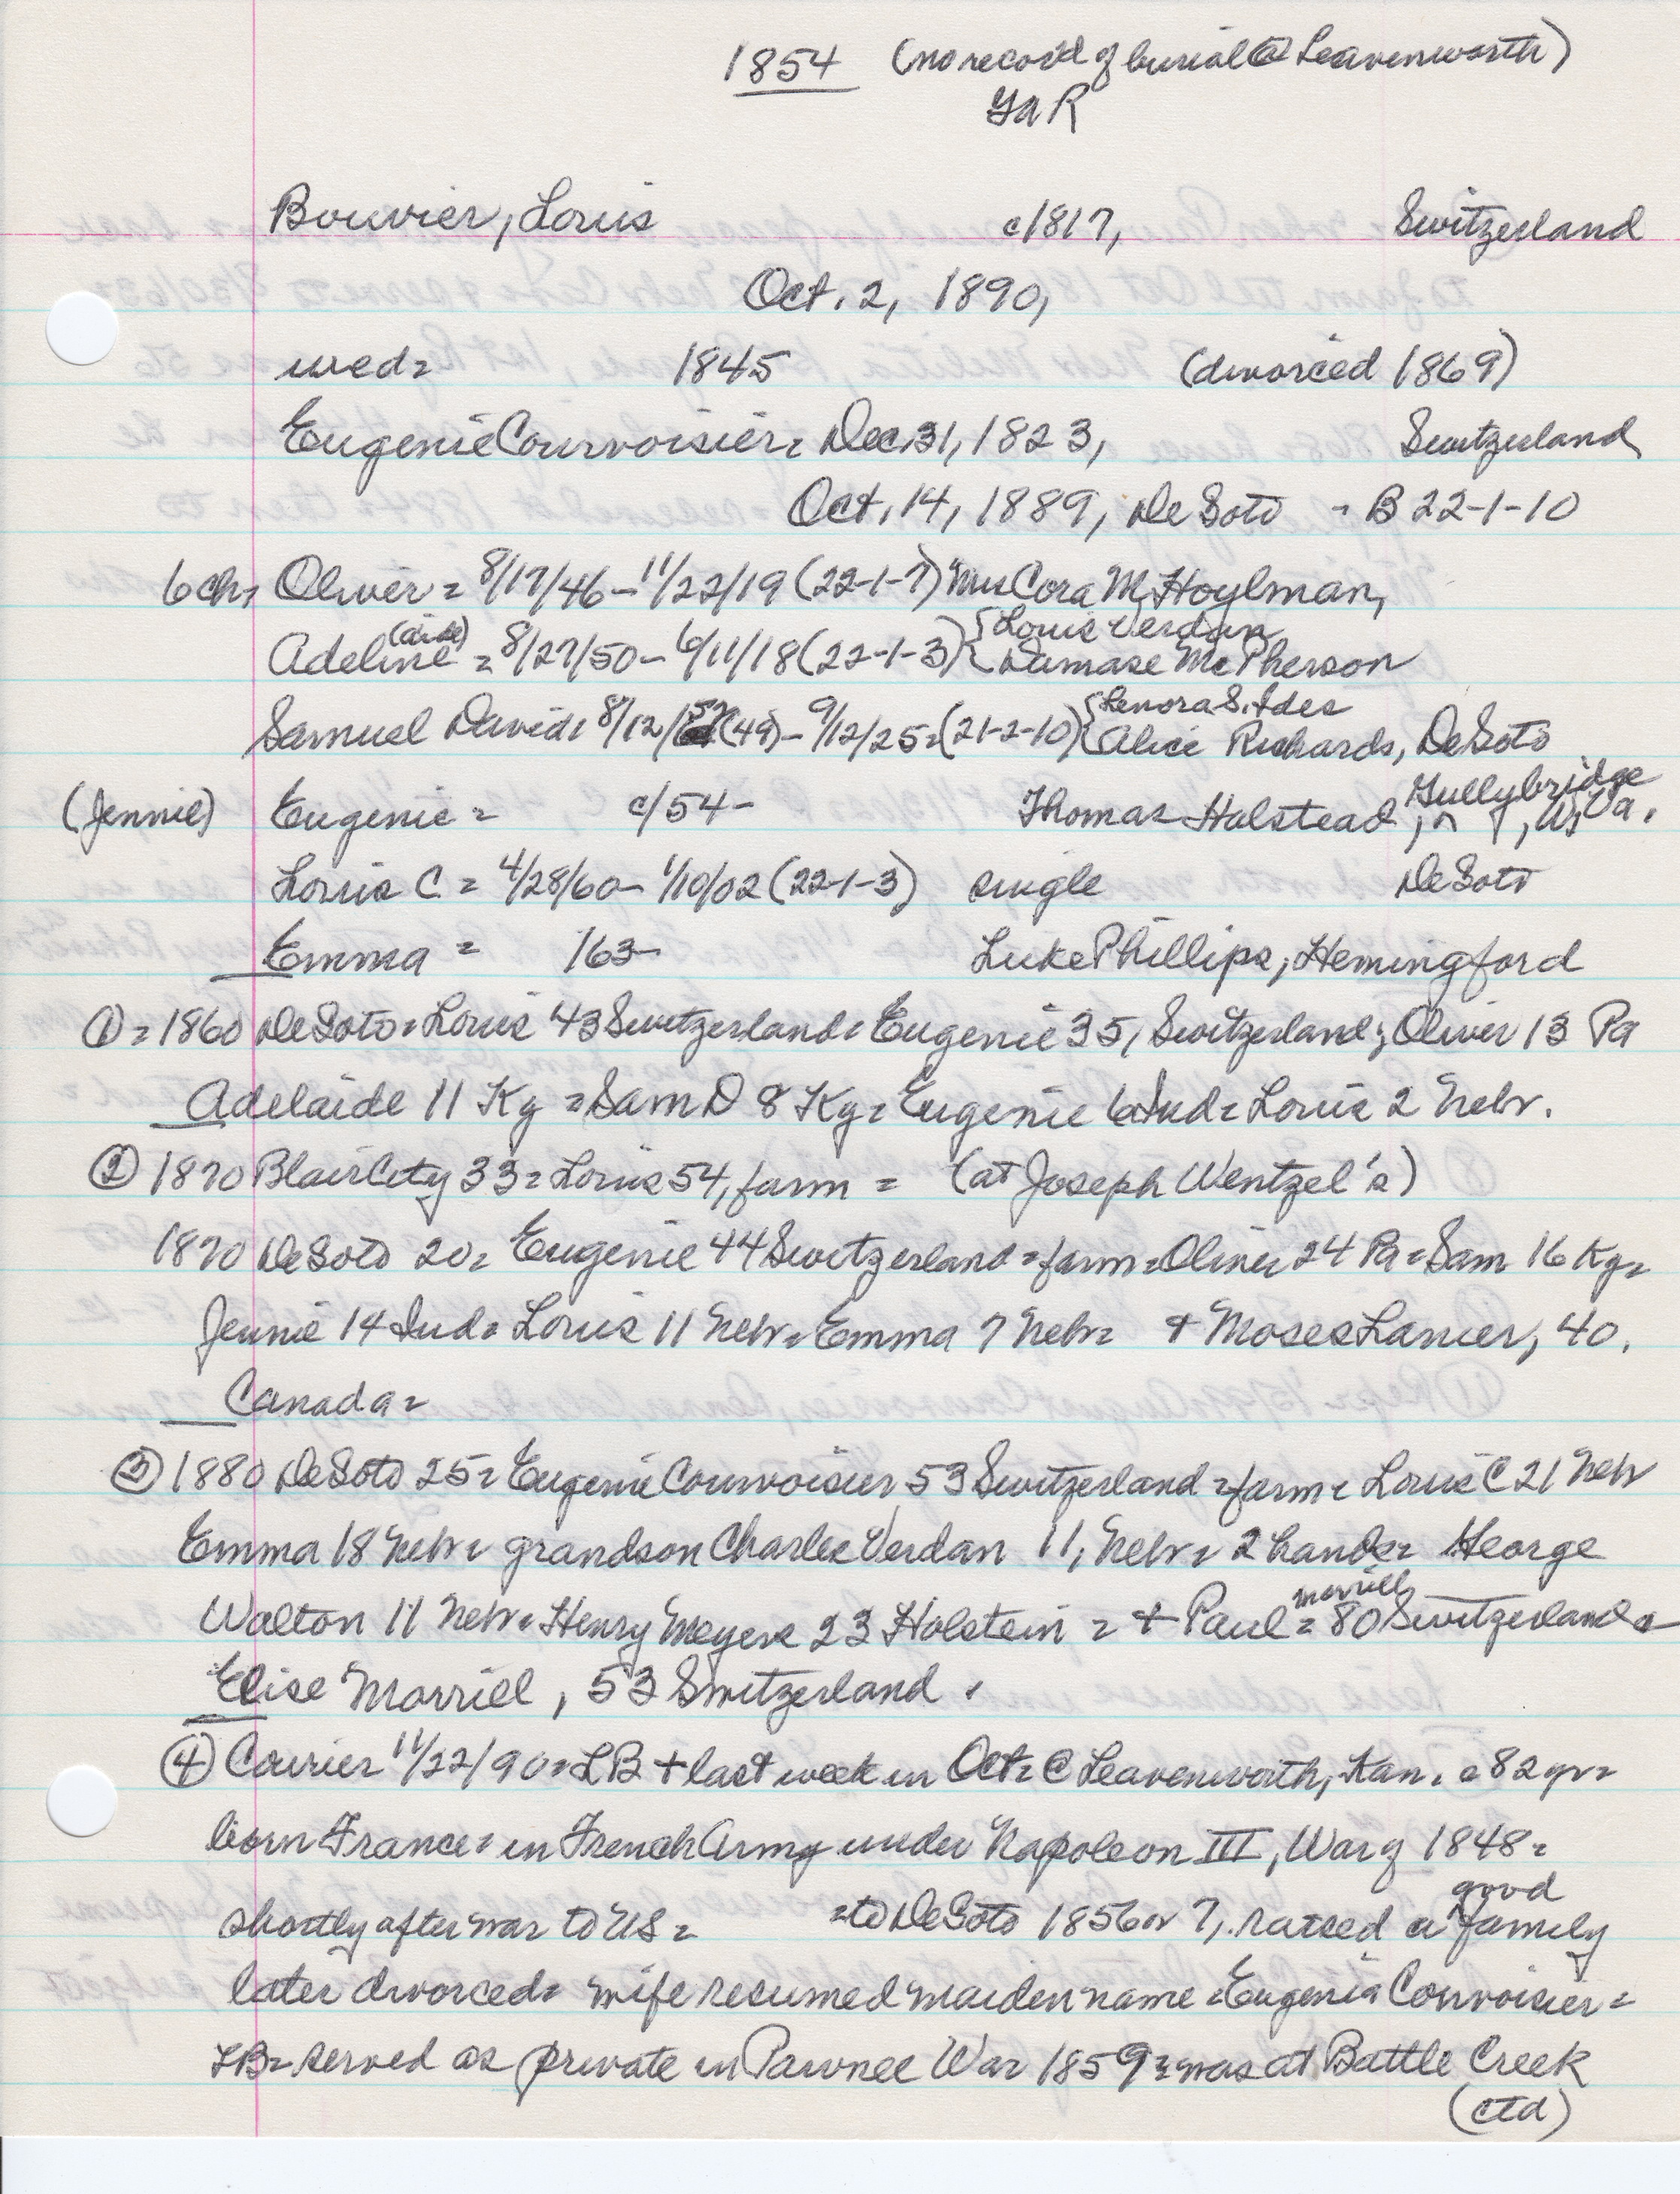 1854 (no record of burial @ Leavenworth)
GAR
Bouvier, Louis c1817, Switzerland
Oct. 2, 1890,
wed= 1845 (divorced 1869)
Eugenie Courvoisier= Dec. 31, 1823, Switzerland
Oct. 14, 1889, DeSoto - B 22-1-10
6 ch= Oliver = 8/17/46 - 11/22/19 (22-1-7) Mrs Cora M. Hoylman,
(aide) {Louis Verdan
Adeline = 8/27/50 - 6/11/18 (22-1-3) {Damase McPherson
{Lenora S. Ides
Samuel David= 8/12/52 (49) - 9/12/25= (21-2-10) {Alice Richards, DeSoto
(Jennie) Eugenie = c/54 - Thomas Halstead, Gullybridge, W Va.
Louis C = 4/28/60 - 1/10/02 (22-1-3) single DeSoto
Emma = /63 - Luke Phillips, Hemingford
① = 1860 DeSoto= Louis 43 Switzerland= Eugenie 35, Switzerland; Oliver 13 Pa
Adelaide 11 Ky = Sam D 8 Ky= Eugenie 6 Ind= Louis 2 Nebr.
② 1870 Blair City 33= Louis 54, farm = (at Joseph Wentzel's)
1870 DeSoto 20= Eugenie 44 Switzerland = farm= Oliver 24 Pa= Sam 16 Ky=
Jennie 14 Ind= Louis 11 Nebr= Emma 7 Nebr= + Moses Lanier, 40,
Canada=
③ 1880 DeSoto 25= Eugenie Courvoisier 53 Switzerland = farm= Louis C 21 Nebr
Emma 18 Nebr= grandson Charles Verdan 11, Nebr= 2 hands= George
Walton 11 Nebr= Henry Meyers 23 Holstein = + Paul Morriell = 80 Switzerland &
Elise Morriel, 53 Switzerland.
④ Courier 11/22/90= LB + last week in Oct= @ Leavenworth, Kan. = 82 yr=
born France= in French Army under Napoleon III, War of 1848=
shortly after war to US= = to DeSoto 1856 or 7, raised a good family
later divorced= wife resumed maiden name = Eugenia Convoisier=
LB= served as private in Pawnee War 1859= was at Battle Creek
(ctd)